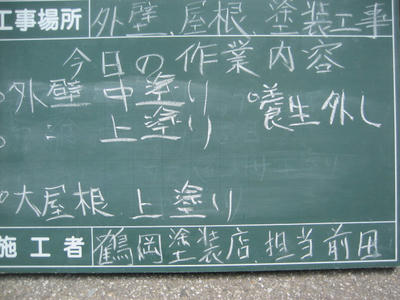 工事場所 外壁、屋根 塗装工事
今日の作業内容
○外壁 中塗り ○養生外し
○ 〃 上塗り
○大屋根 上塗り
施工者 鶴岡塗装店.担当前田